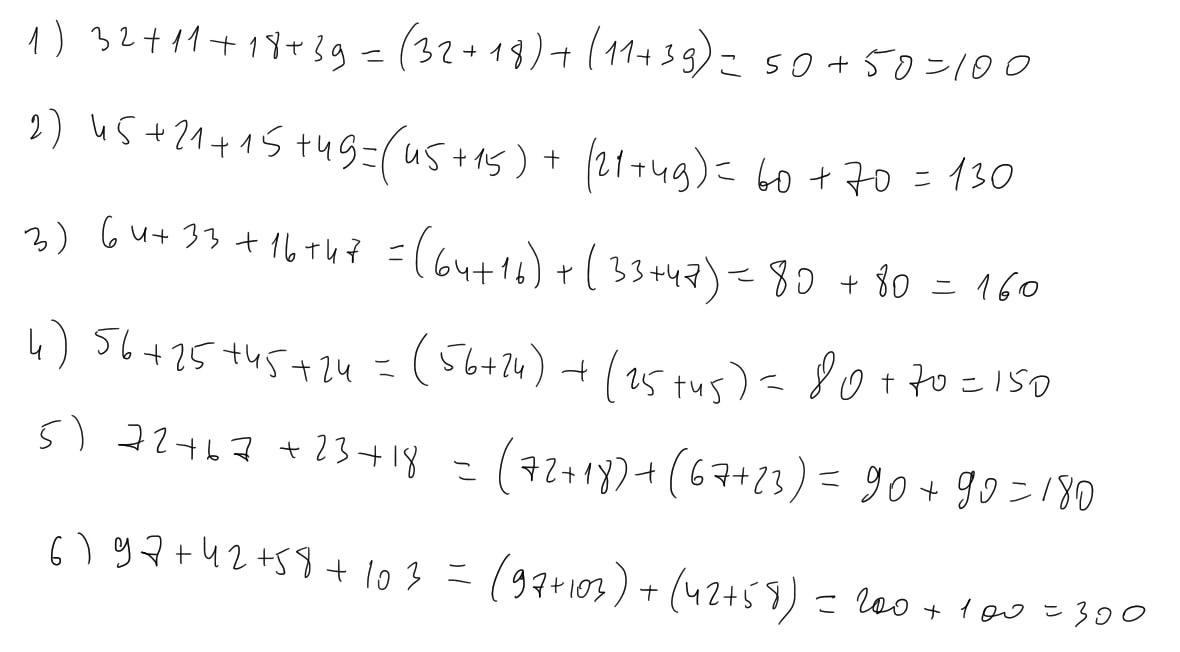 1) 32+11+18+39=(32+18)+(11+39)=50+50=100
2) 45+21+15+49=(45+15)+(21+49)=60+70=130
3) 64+33+16+47=(64+16)+(33+47)=80+80=160
4) 56+25+45+24=(56+24)+(25+45)=80+70=150
5) 72+67+23+18=(72+18)+(67+23)=90+90=180
6) 97+42+58+103=(97+103)+(42+58)=200+100=300